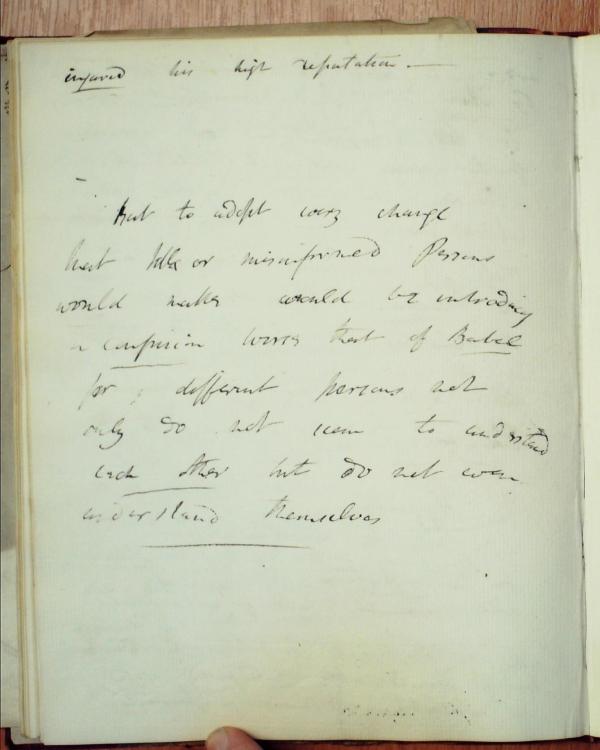 injured his high reputation. —
But to adopt every change
that idle or misinformed Persons
would make would be introducing
a confusion worse than that of Babel
for different persons not
only do not seem to understand
each other but do not even
understand themselves